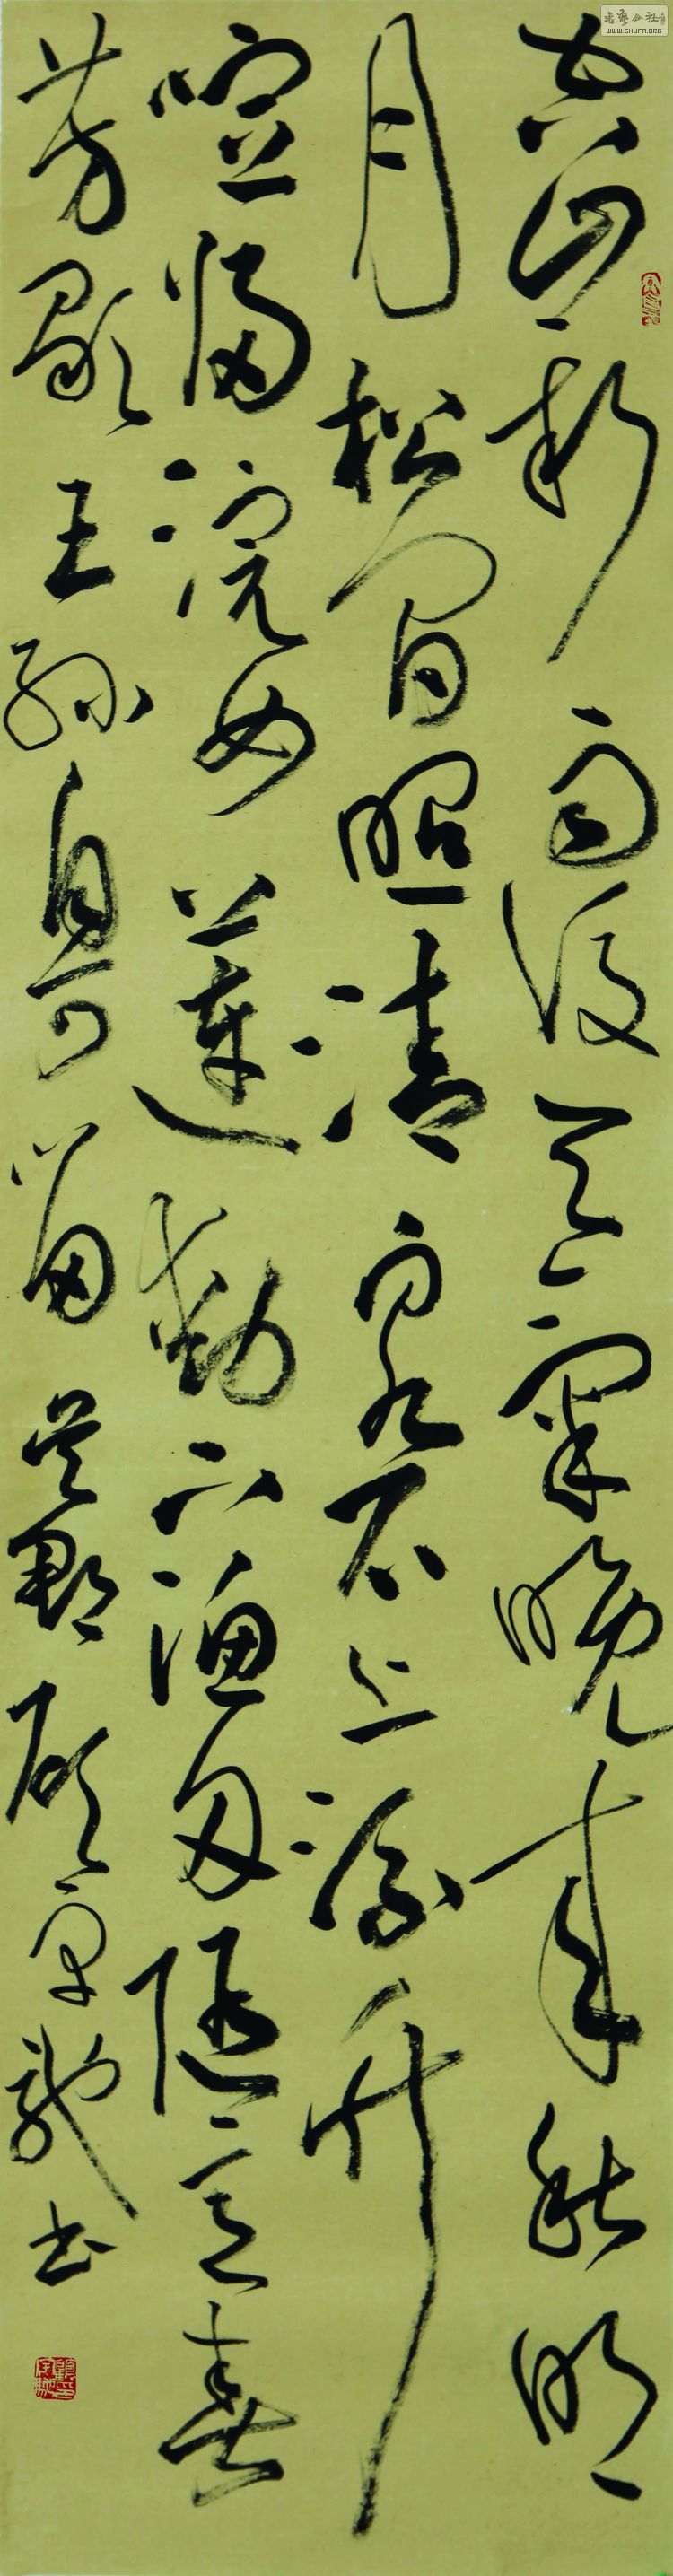 空山新雨後天氣晚來秋明
月松間照清泉石上流竹
喧歸浣女蓮動下漁舟隨意春
芳歇王孫自可留 吳郡顧宇馳書
WWW.SHUFA.ORG